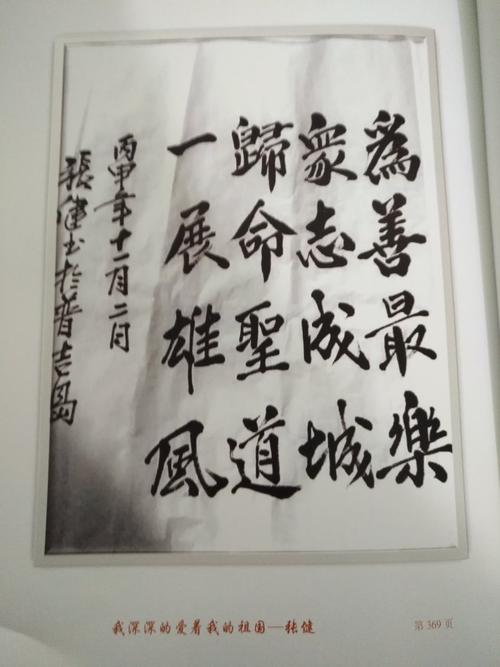 為善最樂
衆志成城
歸命聖道
一展雄風
丙申年十一月二日
張健书於普吉岛
我深深的爱着我的祖国—张健
第369页